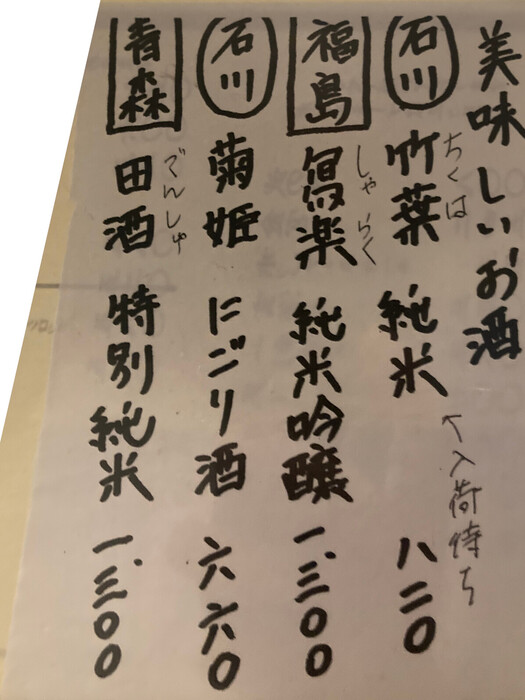 美味しいお酒
石川 竹葉 純米 八二〇
ちくは
↑入荷待ち
福島 冩楽 純米吟醸 一、三〇〇
しゃらく
石川 菊姫 にごり酒 六六〇
青森 田酒 特別純米 一、三〇〇
でんしゅ